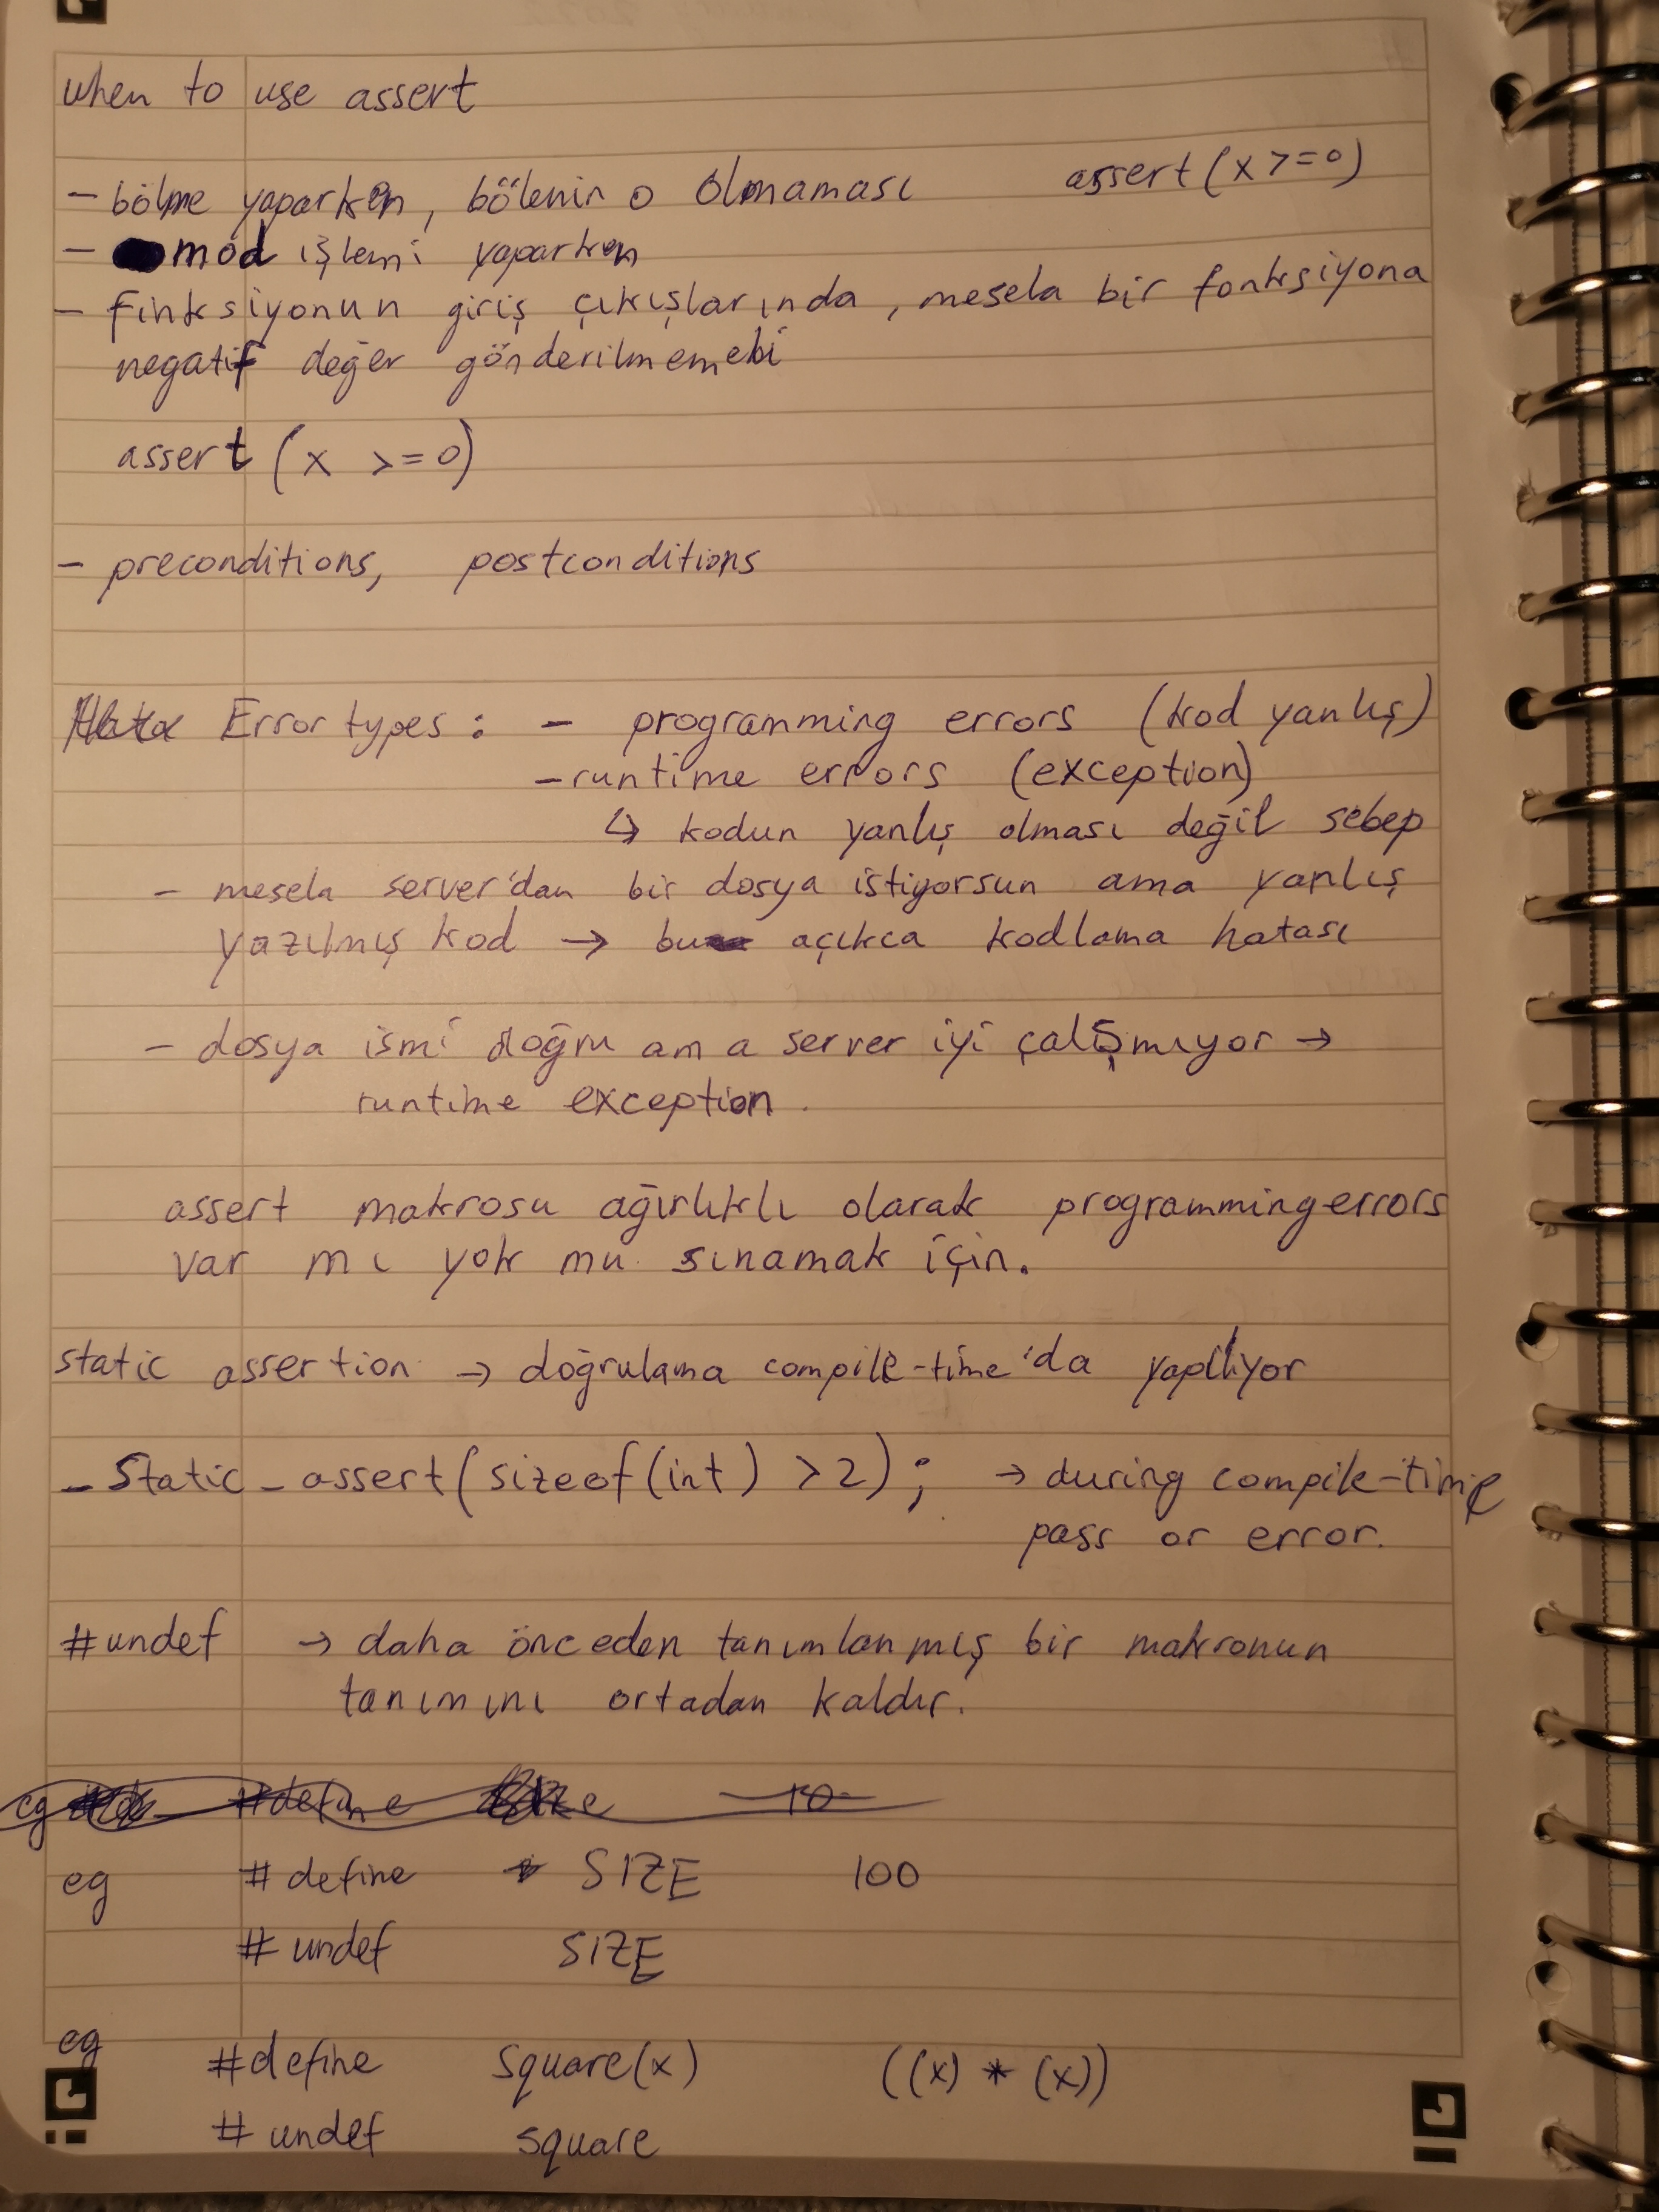 when to use assert
- bölme yaparken, bölenin 0 olmaması assert(x >=0)
- mod işlemi yaparken
- finksiyonun giriş çıkışlarında, mesela bir fonksiyona
negatif değer gönderilmemebi
assert (x >=0)
- preconditions, postconditions
Hata Error types: - programming errors (kod yanlış)
- runtime errors (exception)
↳ kodun yanlış olması değil sebep
- mesela server'dan bir dosya istiyorsun ama yanlış
yazılmış kod → bu açıkca kodlama hatası
- dosya ismi doğru ama server iyi çalışmıyor →
runtime exception.
assert makrosu ağırlıklı olarak programming errors
var mı yok mu sınamak için.
static assertion → doğrulama compile-time'da yapılıyor
_Static_assert(sizeof(int) >2); → during compile-time
pass or error.
#undef → daha önceden tanımlanmış bir makronun
tanımını ortadan kaldır.
eg #define 10
eg #define SIZE 100
#undef SIZE
eg
#define square(x) ((x) * (x))
#undef square